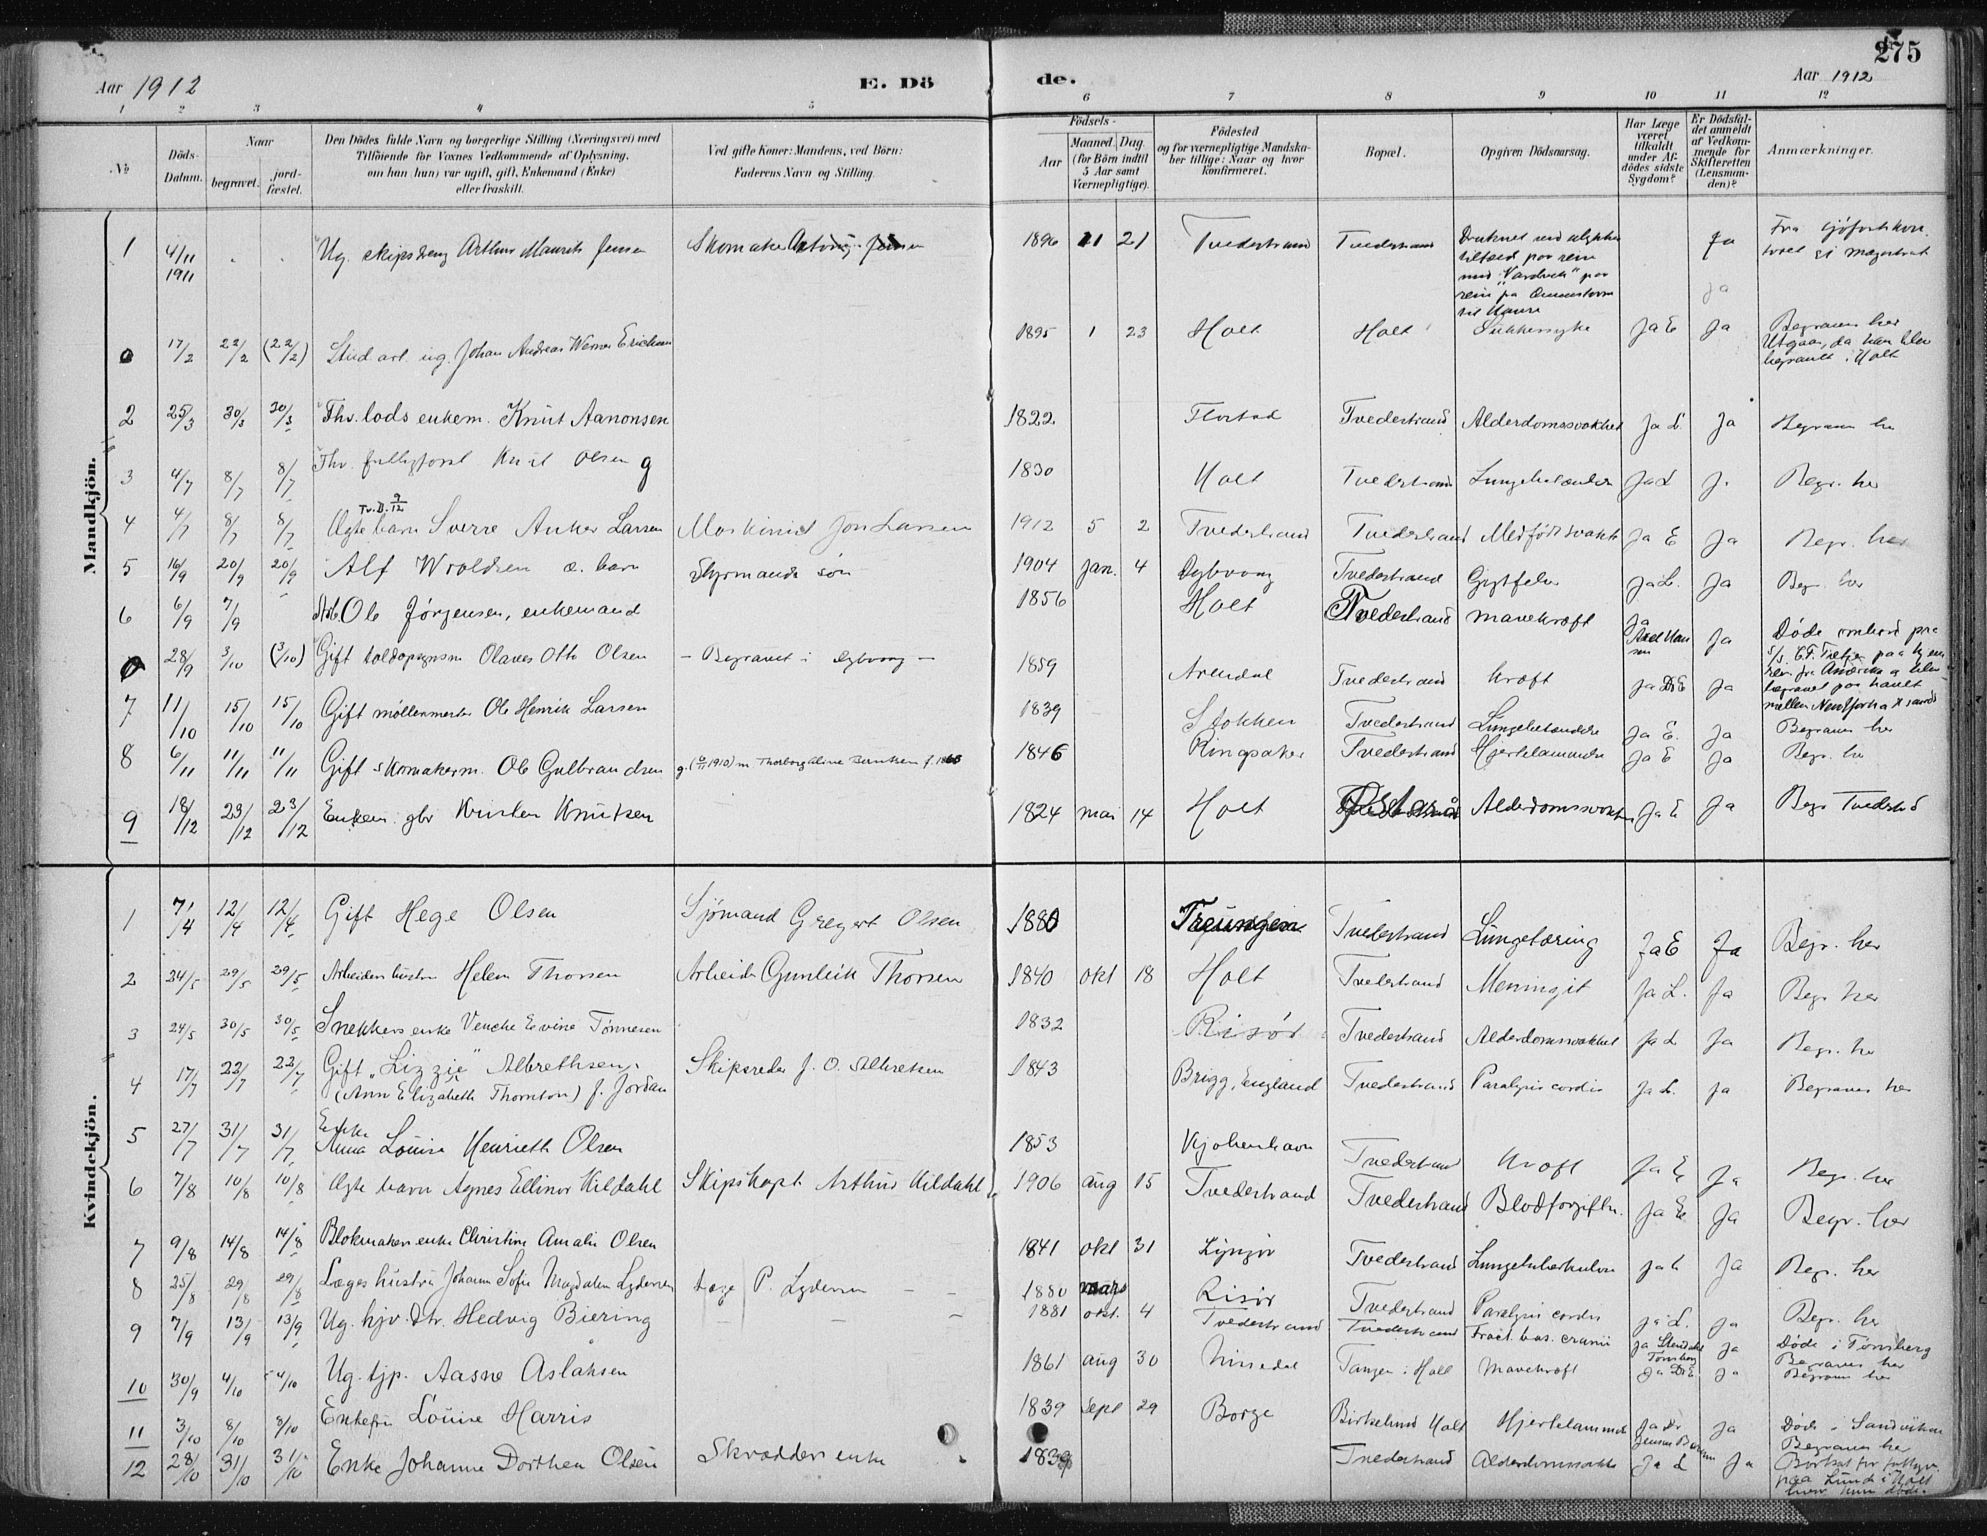 275
Aar 1912
E. Dö
de.
Aar 1912
1 2 3 4 5 6 7 8 9 10 11 12
No
Döds-Datum.
Naar
begravet.
jord-fæstet.
Den Dödes fulde Navn og borgerlige Stilling (Næringsvei) med
Tilföiende for Voxnes Vedkommende af Oplysning,
om han (hun) var ugift, gift, Enkemand (Enke)
eller fraskilt.
Ved gifte Koner: Mandens, ved Börn:
Faderens Navn og Stilling.
Födsels-
Aar
Maaned. Dag.
(for Börn indtil
5 Aar samt
Værnepligtige).
Födested
og for værnepligtige Mandska-
ber tillige: Naar og hvor
konfirmeret.
Bopæl.
Opgiven Dödsaarsag.
Har Læge
været
tilkaldt
under Af-
dödes sidste
Sygdom?
Er Dödsfal-
det anmeldt
af Vedkom-
mende for
Skifteretten
(Lensman-
den)?
Anmærkninger.
Mandkjön.
1 4/11 1911 Ug. skipsdreng Arthur Maurits Jensen Skomaker Jensen 1896 11 21 Tvedestrand Tvedestrand Druknet ved Ja
0 17/2 22/2 (22/2) Stud art ug. Johan Andreas Werner Ericksen 1895 1 23 Holt Holt Sukkersyke Ja E Ja Begraves her
Utgaar, da han blev
begravet i Holt
2 25/3 30/3 30/3 Fhv. lods enkem. Knut Aanonsen 1822 Flostad Tvedestrand Alderdomssvakhet Ja L. Ja Begraves her
3 4/7 8/7 8/7 Fhv. Knut Olsen g 1830 Holt Tvedestrand Lungebetændelse Ja L J. Begr. her
4 4/7 8/7 8/7 Tv.D. 9/12 Ægte barn Sverre Anker Larsen Maskinist Jon Larsen 1912 5 2 Tvedestrand Tvedestrand Medfødt svakh Ja E Ja Begr. her
5 16/9 20/9 20/9 Alf Wroldsen æ. barn Styrmands søn 1904 Jan. 4 Dybvaag Tvedestrand Gigtfeber Ja L. Ja Begr. her
6 6/9 9/9 Arb. Ole Jørgensen, enkemand 1856 Holt Tvedestrand Mavekræft Ja
0 28/9 3/10 (3/10) Gift toldopsynsm Olaves Otto Olsen - Begravet i Dybvaag - 1859 Arendal Tvedestrand Kræft Ja Dr E Ja
Døde ombord paa
S/S. C.F. Tietgen paa hjem
reise fra Amerika og blev
begravet paa havet
mellem New York og Kr.sand
7 11/10 15/10 15/10 Gift møllermester Ole Henrik Larsen 1839 Stokken Tvedestrand Lungebetændelse Ja E. Ja Begraves her
8 6/11 11/11 11/11 Gift skomakerm. Ole Gulbrandsen 1846 Ringsaker Tvedestrand Hjertelammelse Ja E Ja Begr. her
9 18/12 23/12 23/12 Enkem. gbr Kristen Knutsen 1824 mai 14 Holt Alderdomssvakhet Ja E Ja Begr Tvedestrd
Kvindekjön.
1 7/4 12/4 12/4 Gift Hege Olsen Sjömand Gregert Olsen 1880 Treungen Tvedestrand Lungetæring Ja E Ja Begr. her
2 24/5 29/5 29/5 Arbeiders hustru Helen Thorsen Arbeider Gunleik Thorsen 1840 okt 18 Holt Tvedestrand Meningit Ja L. Ja Begr her
3 24/5 30/5 30/5 Snekkers enke Venche Evine Tønnesen 1832 Risør Tvedestrand Alderdomssvakhet Ja L Ja Begr. her
4 17/7 22/7 22/7 Gift "Lizzie" Albrethsen
(Ann Elizabeth Thornton) f. Jordan Skipsreder J. O. Albretsen 1843 Brigg, England Tvedestrand Paralysis cordis Ja L. Ja Begraves her
5 27/7 31/7 31/7 Enke
Anna Louise Henriette Olsen 1853 Kjøbenhavn Tvedestrand Kræft Ja E Ja Begr. her
6 7/8 10/8 10/8 Ægte barn Agnes Ellinor Kildahl Skipskapt. Arthur Kildahl 1906 aug 15 Tvedestrand Tvedestrand Blodforgiftn. Ja E. Ja Begr. her
7 9/8 14/8 14/8 Blokmakers enke Christine Amalie Olsen 1841 okt 31 Lyngør Tvedestrand Lungetuberkulose Ja E Ja Begr. her
8 25/8 29/8 29/8 Læges hustru Johanne Sofie Magdalene Lydersen Læge P. Lydersen 1880 mars Risør Tvedestrand Paralysis cordis Ja L. Ja Begr. her
9 7/9 13/9 13/9 Ug. hjv. Dtr. Hedvig Biering 1881 okt. 4 Tvedestrand Tvedestrand Fract. bas. cranii Ja Tønsberg Ja Døde i Tønsberg
Begraves her
10 30/9 4/10 4/10 Ug. tjp. Aasne Aslaksen 1861 aug 30 Nissedal Tangen i Holt Mavekræft Ja Dr E Ja Begraves her
11 3/10 8/10 8/10 Enkefru Louise Harris 1839 Sept 29 Borge Birkelund Holt Hjertelammelse Ja Dr Ja Døde i Sandviken
Begraves her
12 28/10 31/10 31/10 Enke Johanne Dorthea Olsen Skrædders enke 1839 Tvedestrand Alderdomssvakh Ja L Ja Bortsat for fattigv.
paa Lunde i Holt
hvor hun døde.